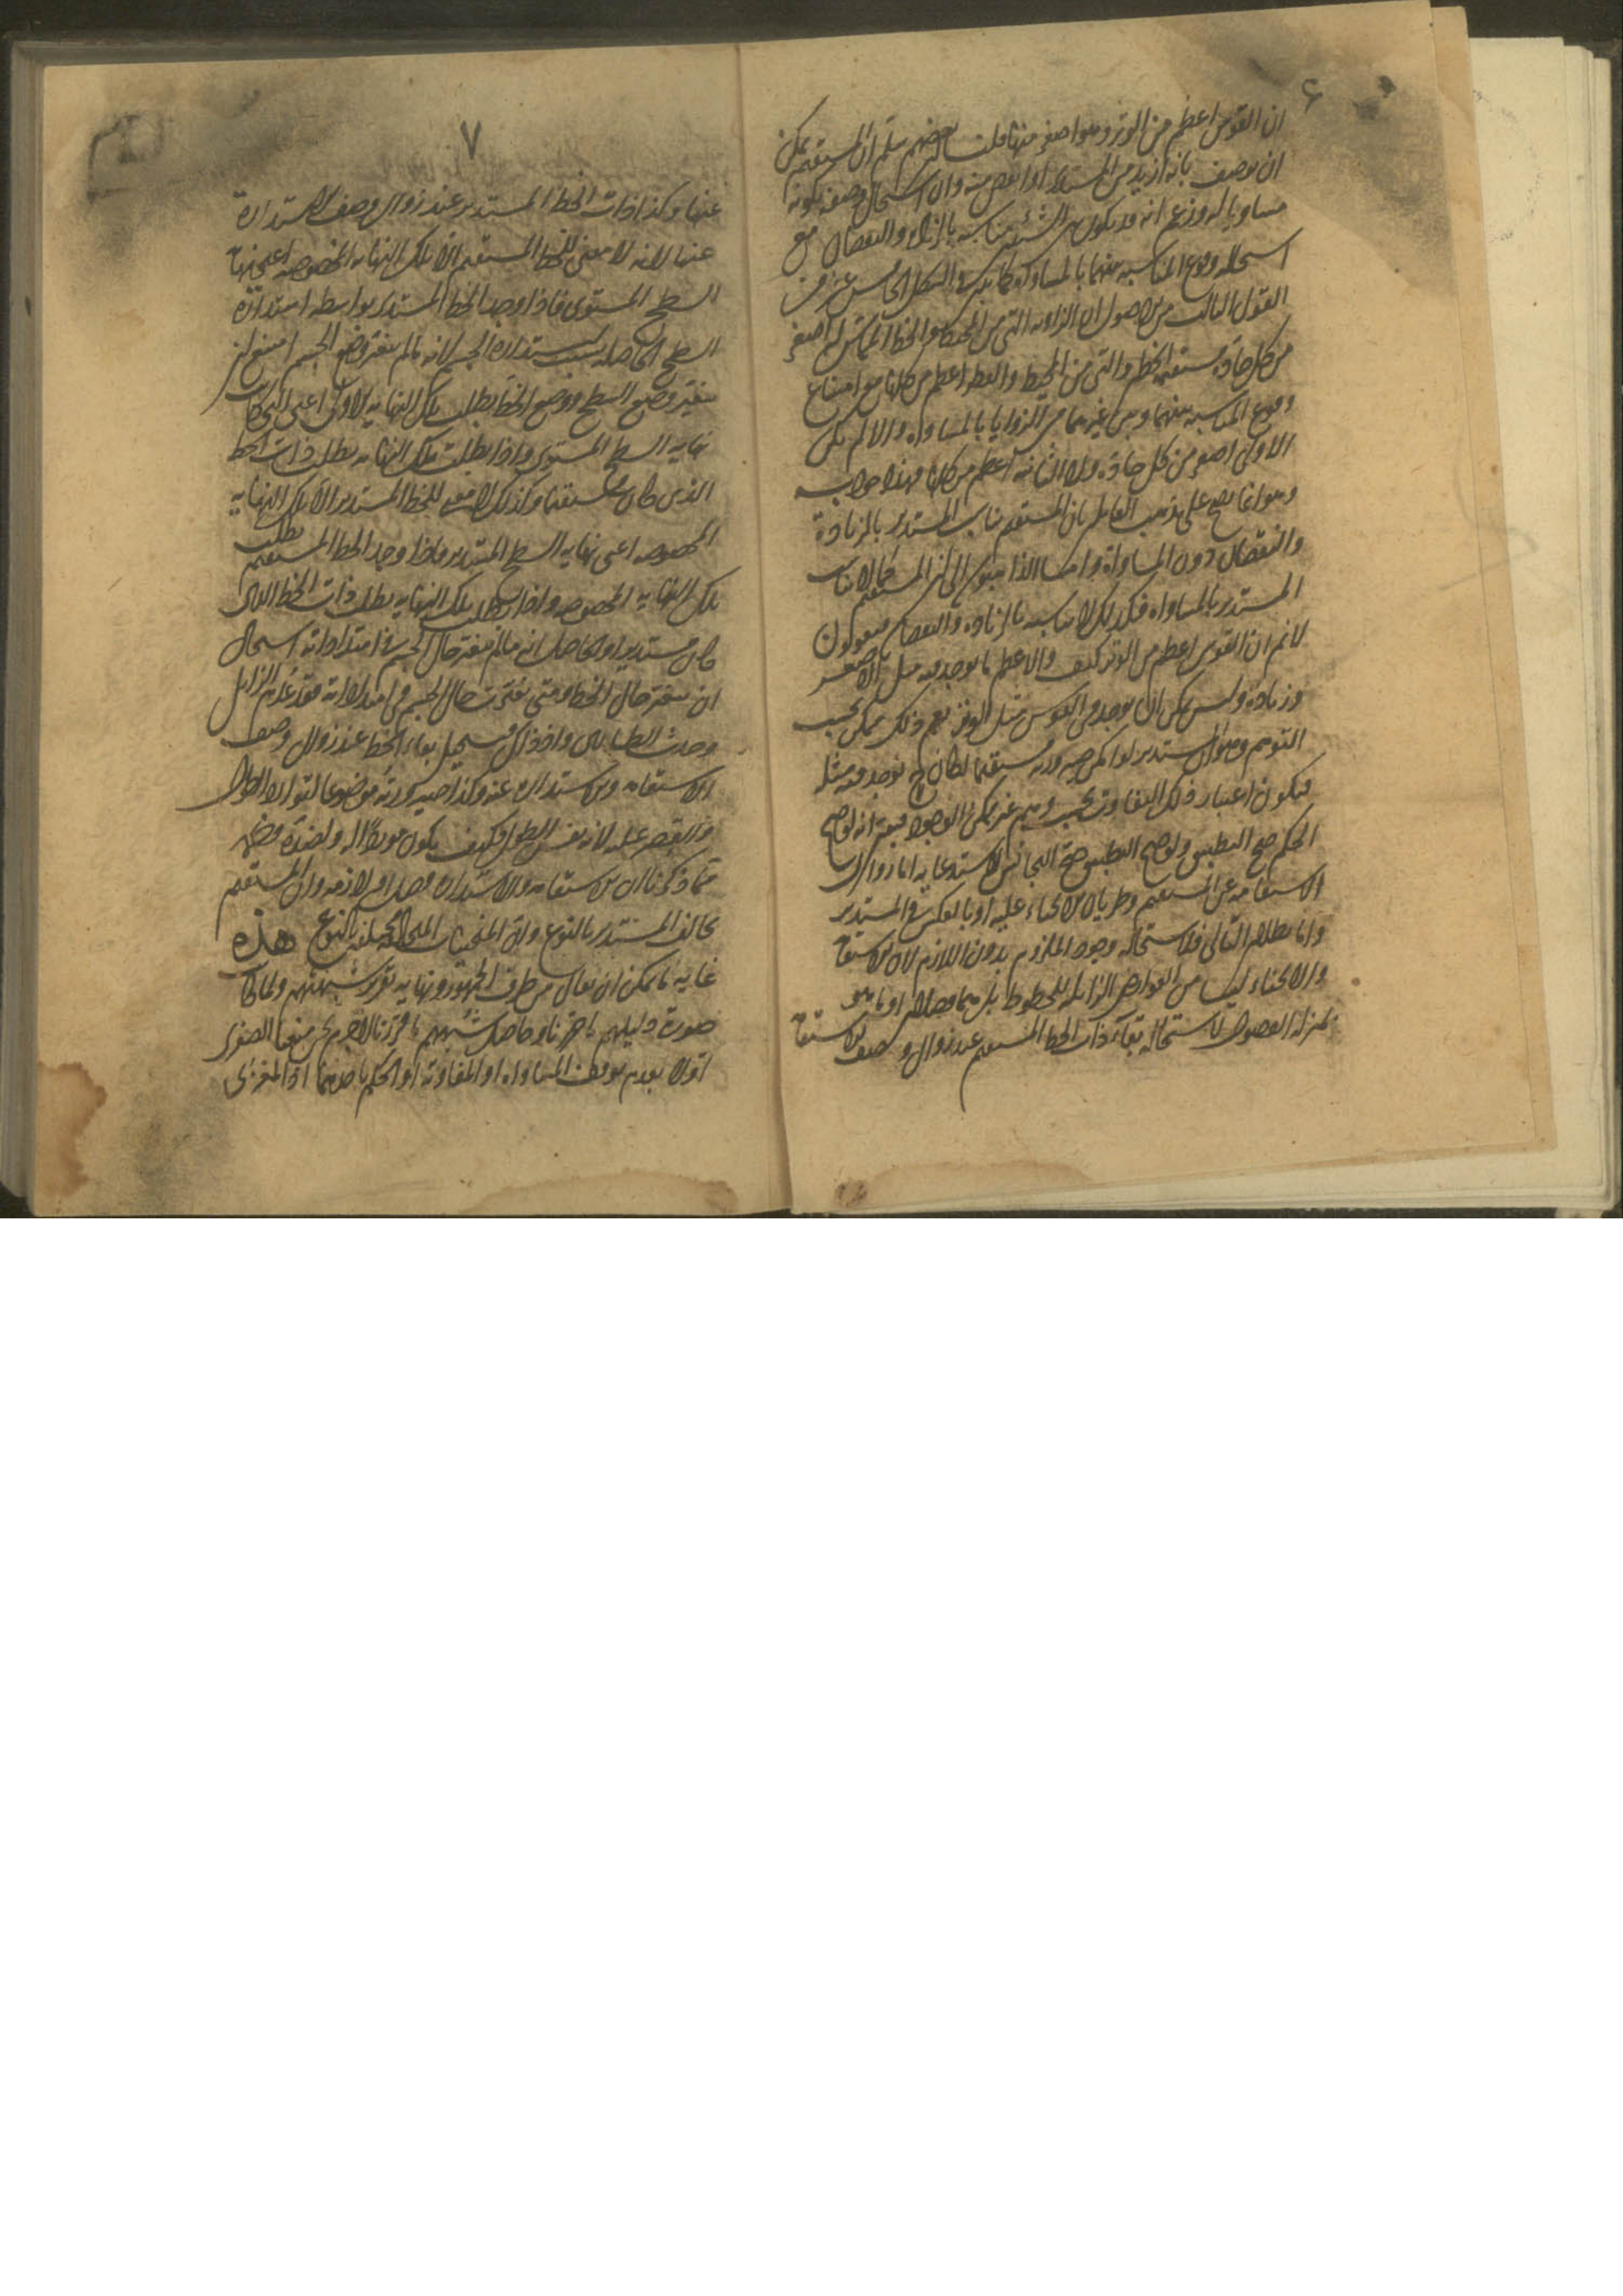 ٦
ان القوس اعظم من الوتر وهو اصغر منها قلت بعضهم يسلم ان المستقيم يمكن
ان يوصف بانه ازيد من المستدير او انقص منه وان استحال وصفه بكونه
مساويا له وزعم انه قد يكون بين الشيئين مناسبة بالزيادة والنقصان مع
استحالة وقوع المناسبة بينهما بالمساواة كما تبين في الشكل الخامس عشر من
القول الثالث من الاصول ان الزاوية التي من المحيط والخط المماس له اصغر
من كل حادة مستقيمة الخطين والتي من المحيط والقطر اعظم من كلها مع امتناع
وقوع المناسبة بينهما وبين غيرهما من الزوايا بالمساواة والا لم يكن
الاولى اصغر من كل حادة ولا الثانية اعظم من كلها فهذا جوابه
وهو انما يصح على مذهب القائل بان المستقيم يناسب المستدير بالزيادة
والنقصان دون المساواة واما الذاهبون الى ان المستقيم كما لا يناسب
المستدير بالمساواة فكذلك لا يناسبه بالزيادة والنقصان فيقولون
لا نم ان القوس اعظم من الوتر كيف والاعظم ما يوجد فيه مثل الاصغر
وزيادة وليس يمكن ان يوجد في القوس مثل الوتر نعم ذلك ممكن بحسب
التوهم وهو ان المستدير لو امكن صيرورته مستقيما لكان يوجد فيه مثله
فيكون اعتبار ذلك التفاوت بحسب وهم غير ممكن الوجود فبقي انه لو صح
الحكم صح التطبيق ولو صح التطبيق صح التجانس لاستدعائه اما زوال
الاستقامة عن المستقيم وطريان الانحناء عليه او بالعكس في المستدير
واما بطلان التالي فلاستحالة وجود الملزوم بدون اللازم لان الاستقامة
والانحناء ليسا من العوارض الزائلة للخطوط بل هما فصلان او ما هو
بمنزلة الفصول لاستحالة بقاء ذات الخط المستقيم عند زوال وصف الاستقامة
٧
عنها وكذا ذات الخط المستدير عند زوال وصف الاستدارة
عنها لانه لا معنى للخط المستقيم الا تلك النهاية المخصوصة اعني نهاية
السطح المستوى فاذا وجد الخط المستدير بواسطة استدارة
السطح الحاصلة بسبب استدارة الجسم لانه ما لم يتغير وضع الجسم امتنع ان
يتغير وضع السطح ووضع الخط بطلت تلك النهاية الاولى اعني التي كانت
نهاية السطح المستوى واذا بطلت تلك النهاية بطلت ذات الخط
الذي كان مستقيما وكذلك لا معنى للخط المستدير الا تلك النهاية
المخصوصة اعني نهاية السطح المستدير فاذا وجد الخط المستقيم بطلت
تلك النهاية المخصوصة واذا بطلت تلك النهاية بطلت ذات الخط الذي
كان مستديرا والحاصل انه ما لم يتغير حال الجسم في امتداداته استحال
ان يتغير حال الخط ومتى تغيرت حال الجسم في امتداداته فقد عدم الزايل
وحدث الطاري واذ ذاك فيستحيل بقاء الخط عند زوال وصف
الاستقامة والاستدارة عنه وكذا صيرورته موضوعا لتوارد الطول
والقصر عليه لانه نفس الطول فكيف يكون موردا له ولضده فظهر
مما ذكرنا ان الاستقامة والاستدارة فصل او لازمه وان المستقيم
يخالف المستدير بالنوع وان المنحنيات المتخالفة مختلفة بالنوع هذه
غاية ما يمكن ان يقال من طرف الجمهور ونهاية تقرير شبهتهم ولما كان
صورة دليلهم ما حررنا وحاصل شبهتهم ما قررنا لاجرم نحن منعنا الصغرى
اولا بعدم توقف المساواة او المفاوتة او الحكم باحدهما اذ المغزى